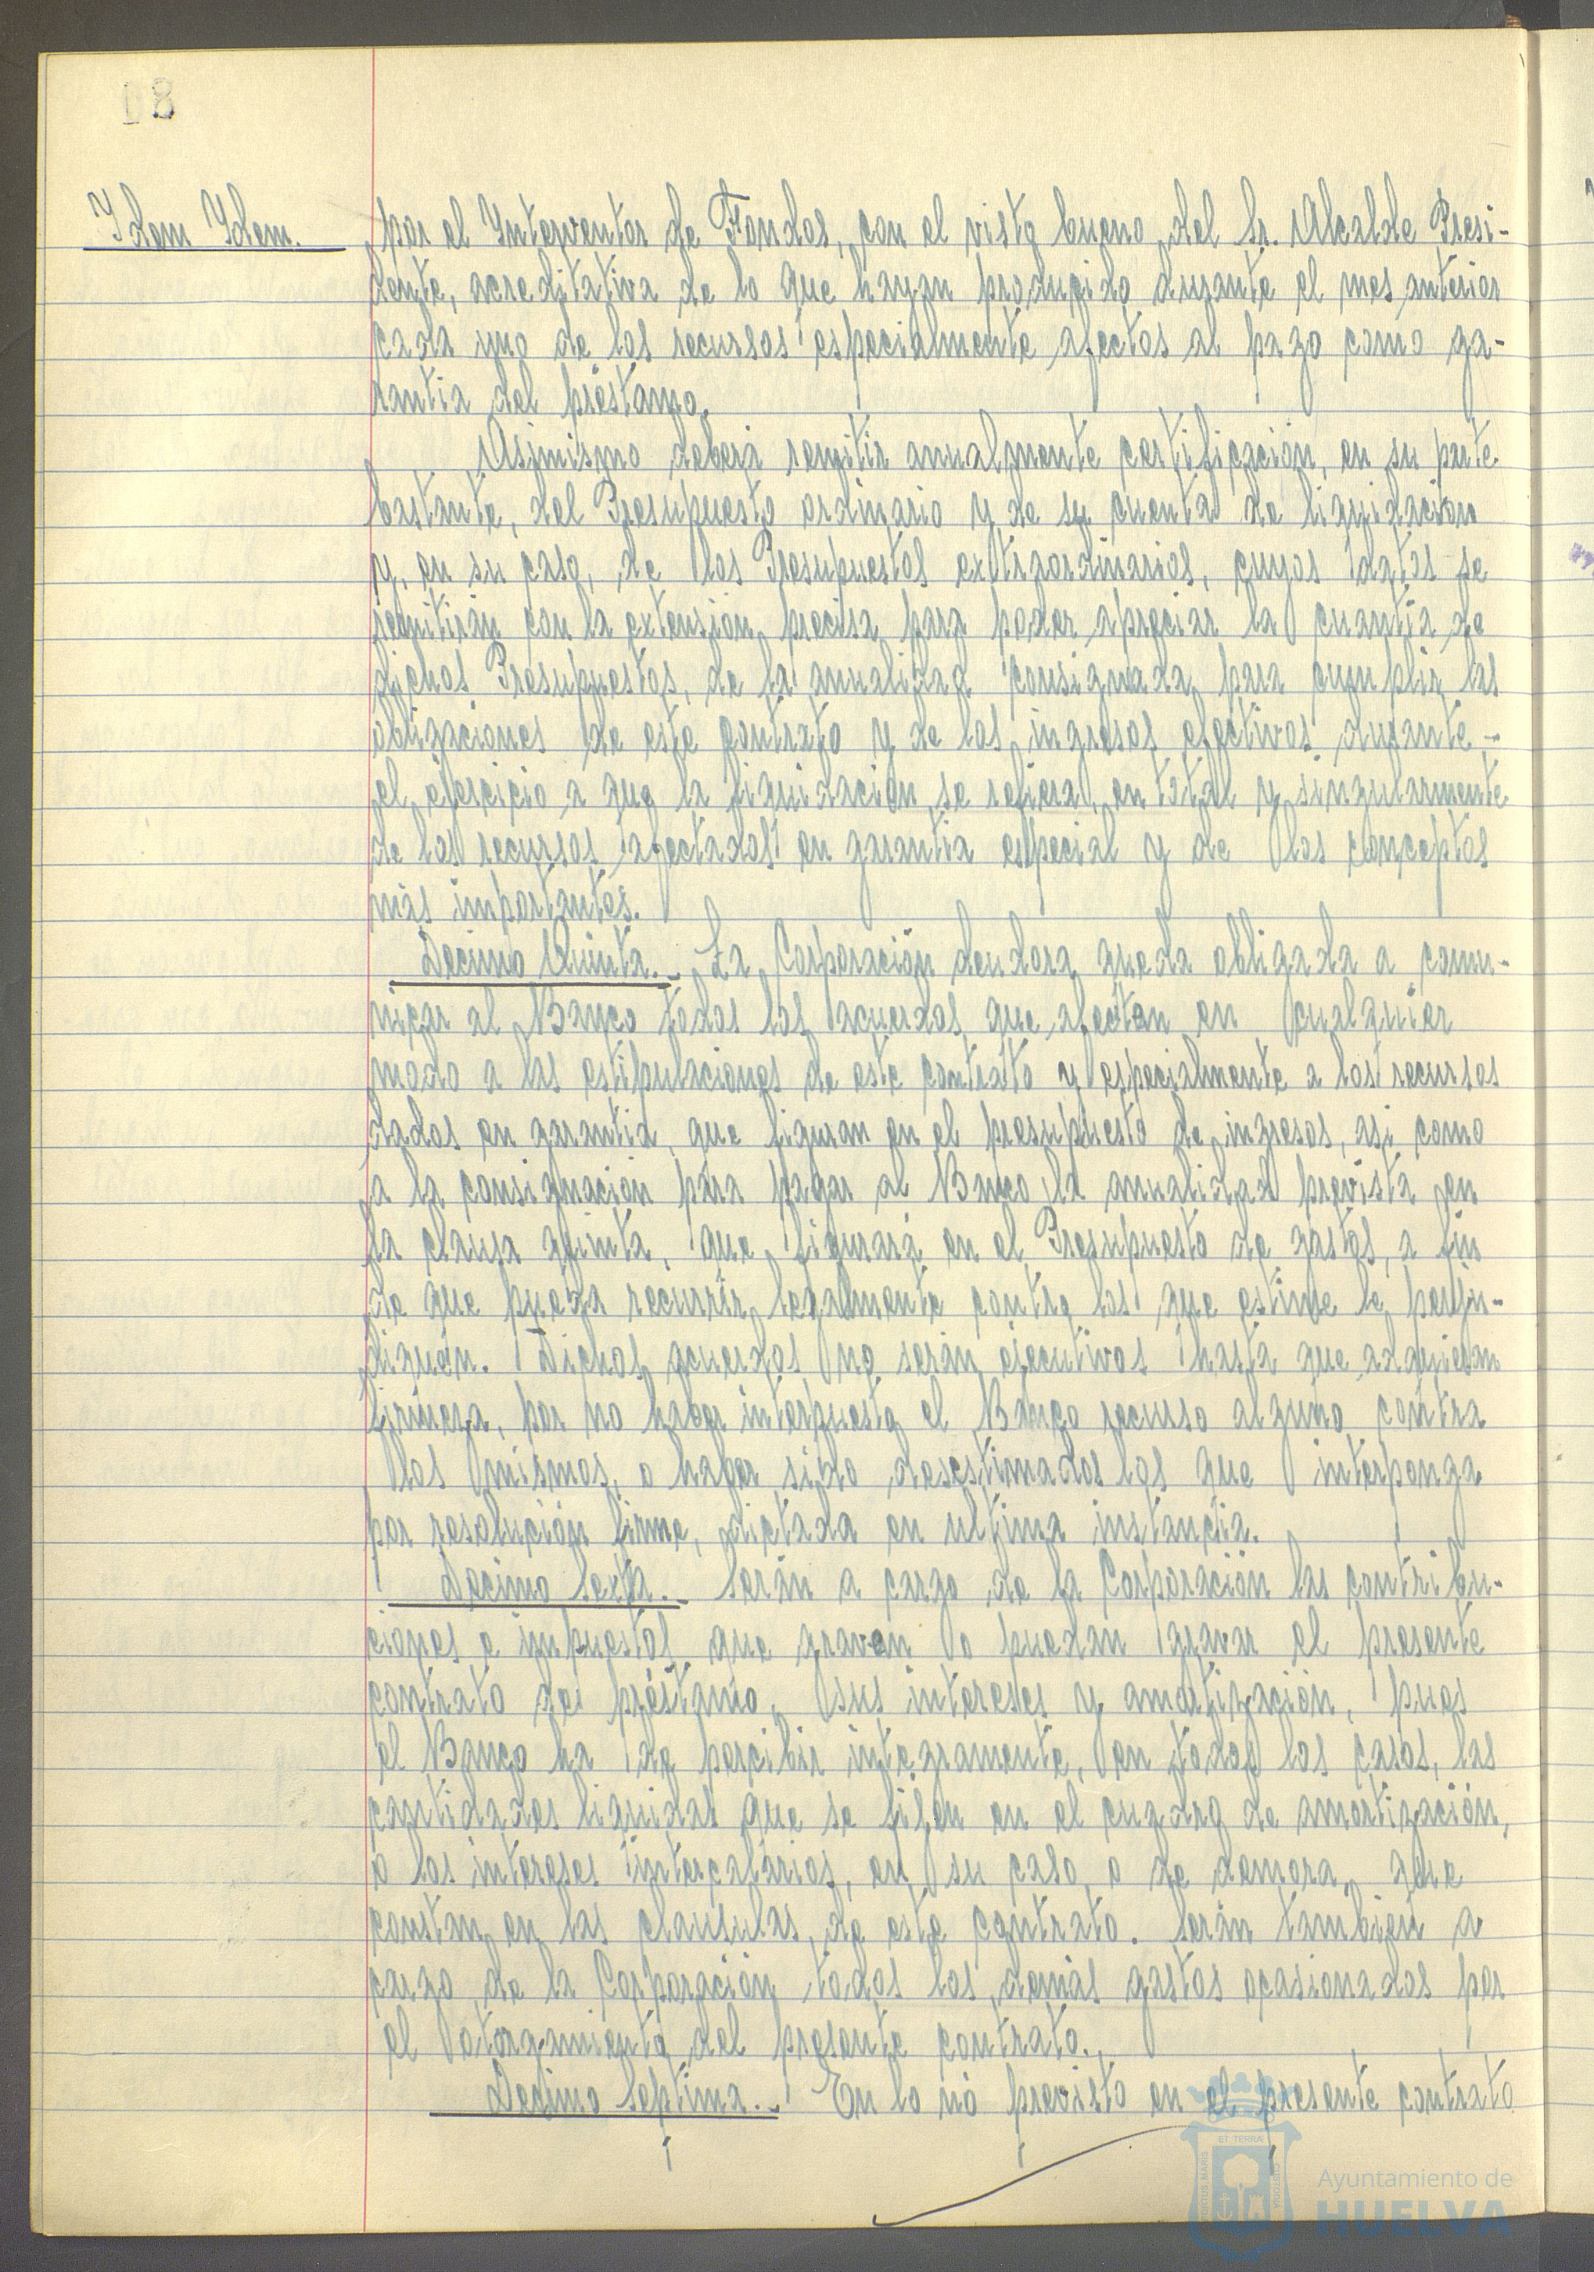 08
Idem Idem.
por el Interventor de Fondos, con el visto bueno del Sr. Alcalde Presi-
dente, acreditativa de lo que hayan producido durante el mes anterior
cada uno de los recursos especialmente afectos al pago como ga-
rantia del préstamo.
Asimismo deberá remitir anualmente certificación, en su parte
bastante, del Presupuesto ordinario y de su cuenta de liquidacion
y, en su caso, de los Presupuestos extraordinarios, cuyos datos se
remitirán con la extensión precisa para poder apreciar la cuantía de
dichos Presupuestos, de la anualidad consignada para cumplir las
obligaciones de este contrato y de los ingresos efectivos durante -
el ejercicio a que la liquidación se refiera, en total y singularmente
de los recursos afectados en garantia especial y de los conceptos
más importantes.
Decimo Quinta.- La Corporación deudora queda obligada a comu-
nicar al Banco todos los acuerdos que afecten en cualquier
modo a las estipulaciones de este contrato y especialmente a los recursos
dados en garantia, que figuran en el presupuesto de ingresos, asi como
a la consignación para pagar al Banco la anualidad prevista en
la clausa quinta, que figurará en el Presupuesto de gastos, a fin
de que pueda recurrir legalmente contra los que estime le perju-
diquen. Dichos acuerdos no serán ejecutivos hasta que adquieran
firmeza, por no haber interpuesto el Banco recurso alguno contra
los mismos, o haber sido desestimados los que interponga
por resolución firme, dictada en ultima instancia.
Decimo Sexta.- Serán a cargo de la Corporación las contribu-
ciones e impuestos que graven o puedan gravar el presente
contrato de préstamo, sus intereses y amortización, pues
el Banco ha de percibir integramente, en todos los casos, las
cantidades liquidas que se fijen en el cuadro de amortización,
o los intereses intercalarios, en su caso, o de demora, que
constan en las clausulas de este contrato. Serán también a
cargo de la Corporación todos los demás gastos ocasionados por
el otorgamiento del presente contrato.
Decimo Septima.- En lo no previsto en el presente contrato
ET TERRAE
PORTUS MARIS
CUSTODIA
Ayuntamiento de
HUELVA